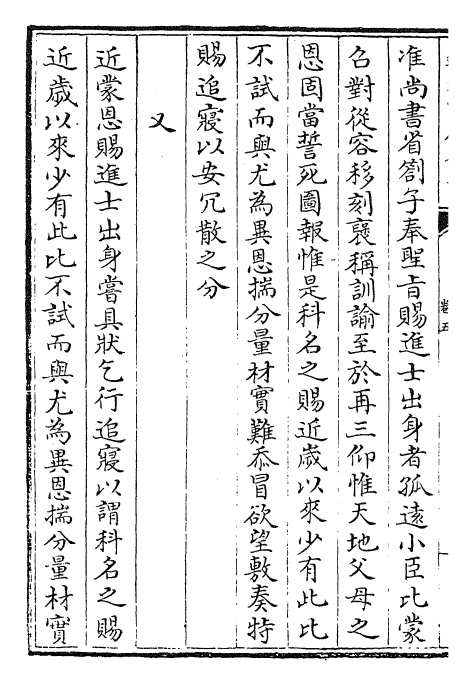 准尚書省劄子奉聖㫖賜進士出身者孤遠小臣比蒙
召對從容移刻襃稱訓諭至於再三仰惟天地父母之
恩固當誓死圖報惟是科名之賜近歲以來少有此比
不試而與尤為異恩揣分量材實難忝冒欲望敷奏特
賜追寢以安冗散之分
又
近蒙恩賜進士出身嘗具狀乞行追寢以謂科名之賜
近歲以來少有此比不試而與尤為異恩揣分量材實
卷五